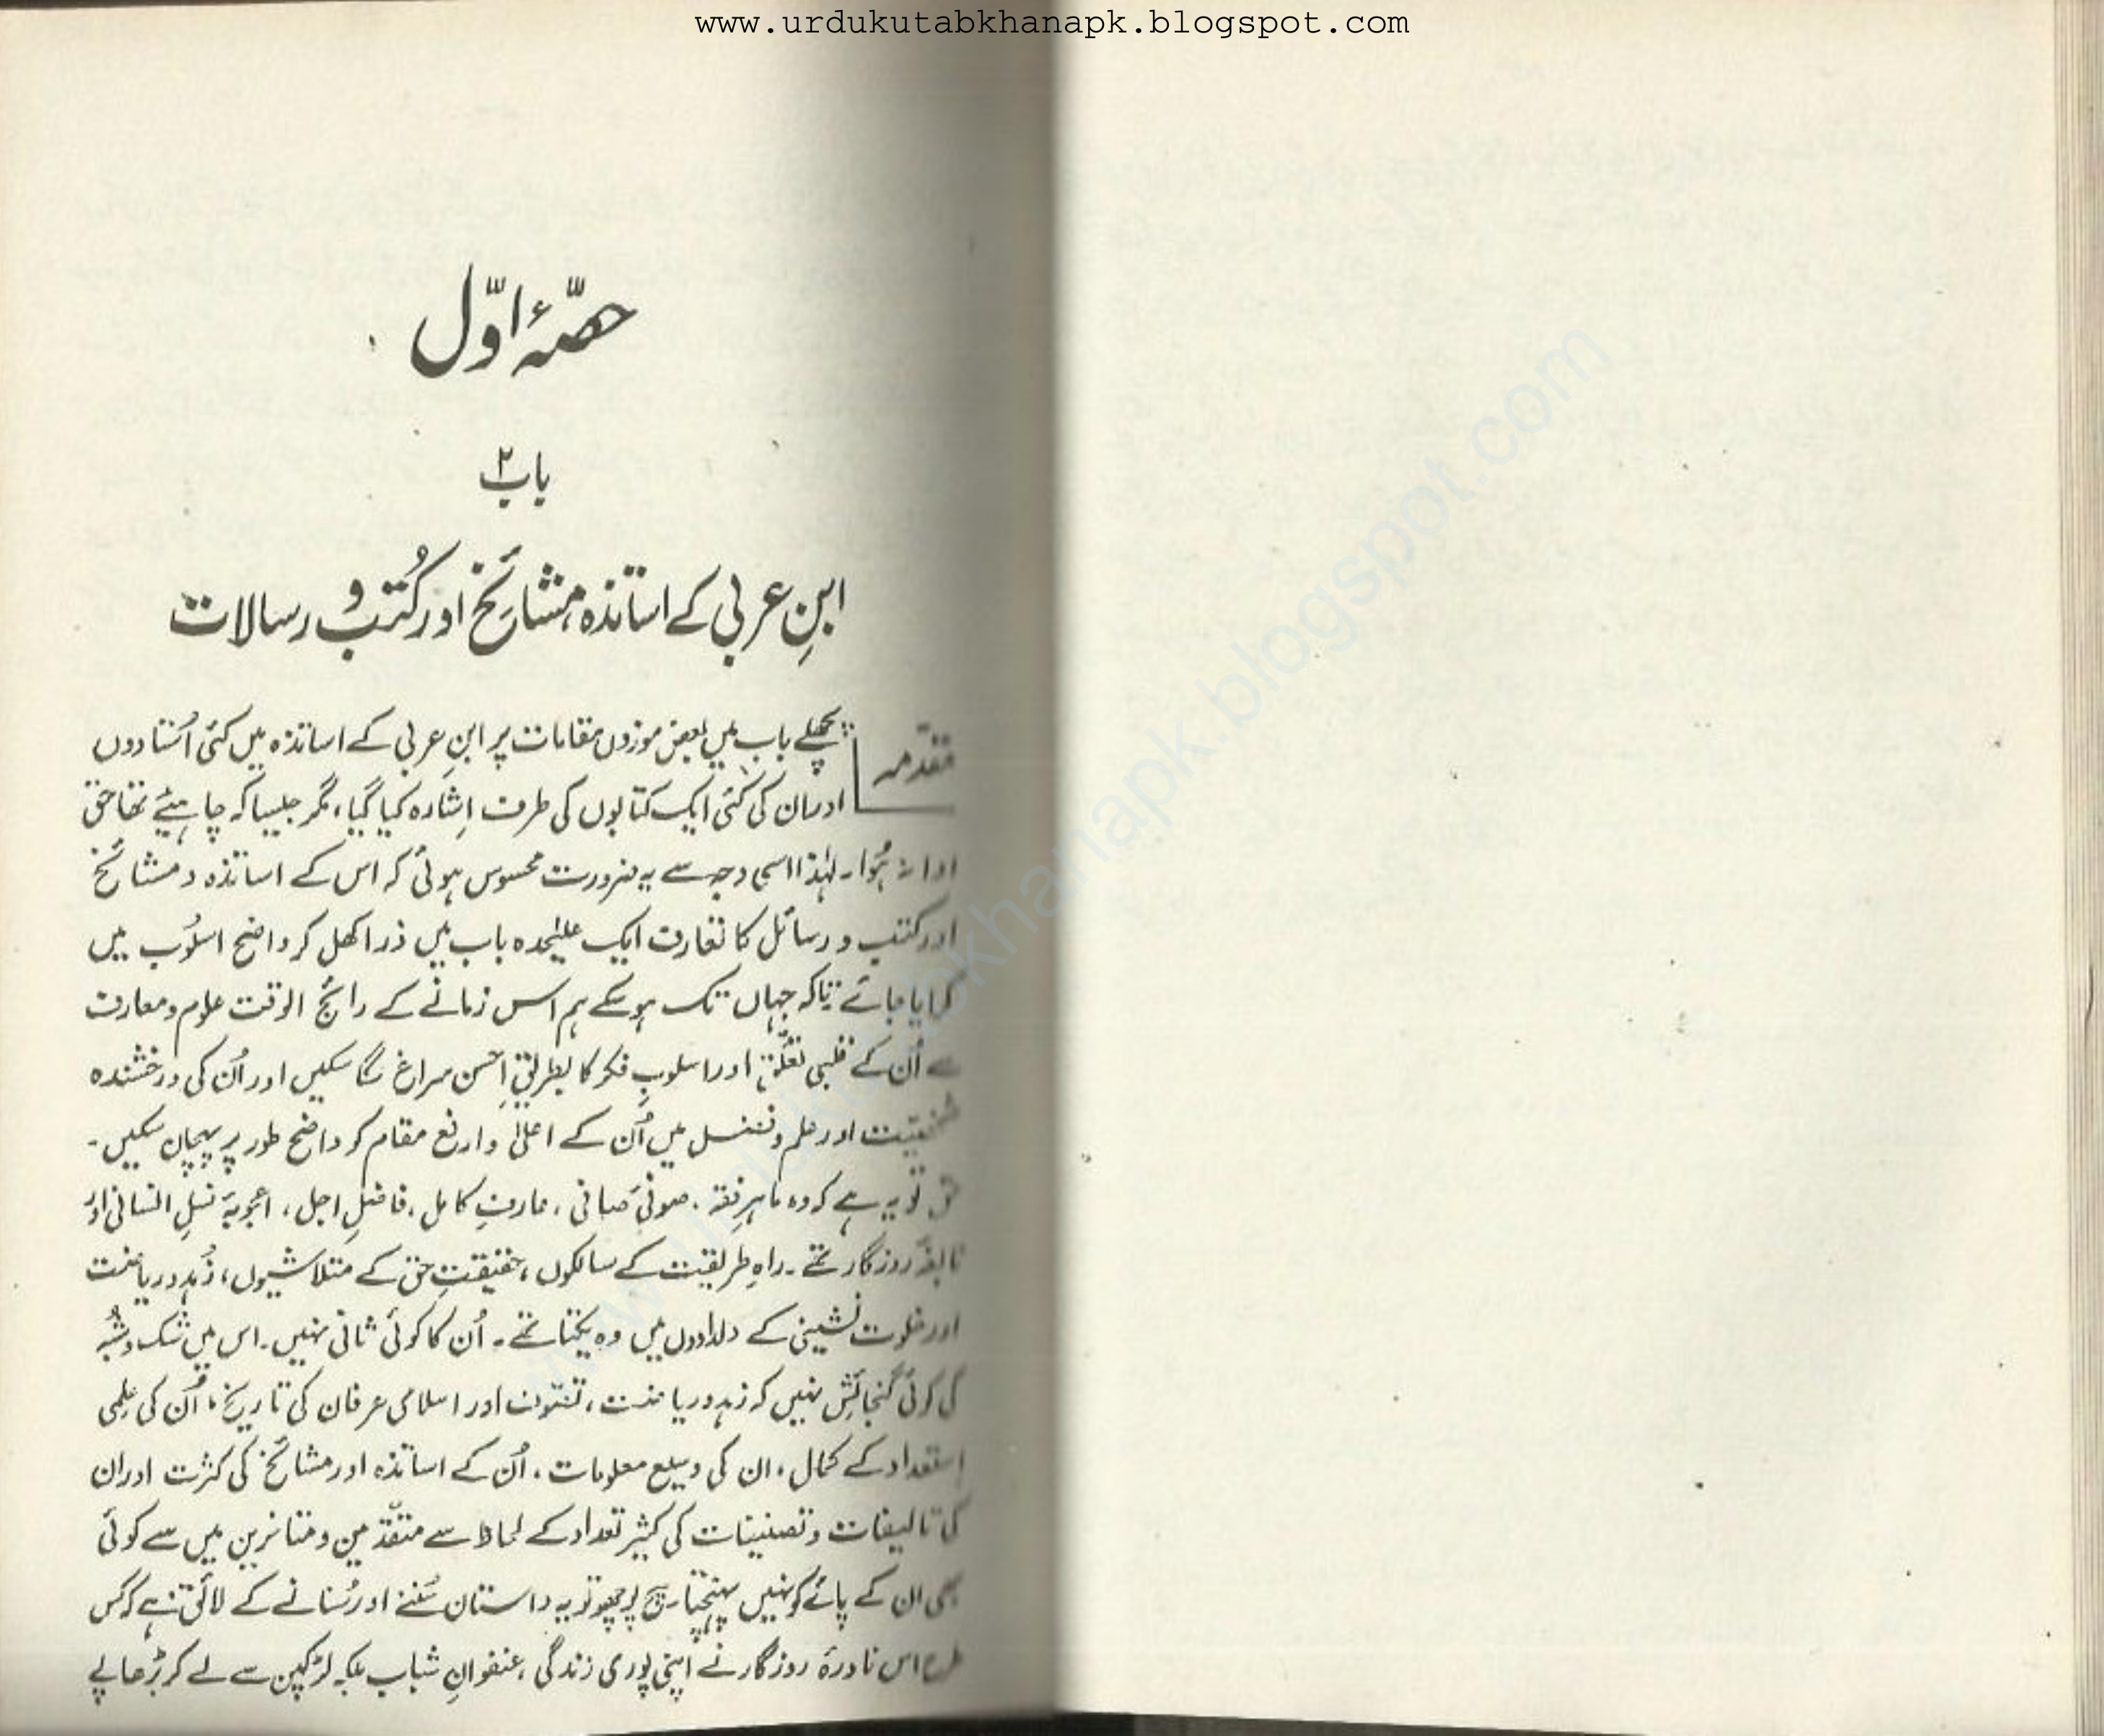 www.urdukutabkhanapk.blogspot.com
حصّۂ اوّل
باب ۲
ابنِ عربی کے اساتذہ، مشائخ اور کُتب و رسالات
مقدّمہ
پچھلے باب میں بعض موزوں مقامات پر ابنِ عربی کے اساتذہ میں کئی اُستادوں
اور ان کی کئی ایک کتابوں کی طرف اِشارہ کیا گیا، مگر جیسا کہ چاہیئے تھا حق
ادا نہ ہُوا۔ لہٰذا اسی وجہ سے یہ ضرورت محسوس ہوئی کہ اس کے اساتذہ و مشائخ
اور کتب و رسائل کا تعارف ایک علیٰحدہ باب میں ذرا کھل کر واضح اسلُوب میں
کرایا جائے تاکہ جہاں تک ہو سکے ہم اس زمانے کے رائج الوقت علوم و معارف
سے اُن کے قلبی تعلّق اور اسلوبِ فکر کا بطریقِ احسن سراغ لگا سکیں اور اُن کی درخشندہ
شخصیّت اور علم و فضل میں اُن کے اعلیٰ و ارفع مقام کو واضح طور پر پہچان سکیں۔
حق تو یہ ہے کہ وہ ماہرِ فقہ، صوفیٔ صافی، عارفِ کامل، فاضلِ اجل، اعجوبۂ نسلِ انسانی اور
نابغۂ روزگار تھے۔ راہِ طریقت کے سالکوں، حقیقتِ حق کے متلاشیوں، زُہد و ریاضت
اور خلوت نشینی کے دلدادوں میں وہ یکتا تھے۔ اُن کا کوئی ثانی نہیں۔ اس میں شک و شُبہ
کی کوئی گنجائش نہیں کہ زہد و ریاضت، تصّوف اور اسلامی عرفان کی تاریخ، اُن کی علِمی
اِستعداد کے کمال، ان کی وسیع معلومات، اُن کے اساتذہ اور مشائخ کی کثرت اور ان
کی تالیفات و تصنیفات کی کثیر تعداد کے لحاظ سے متقدّمین و متاخرین میں سے کوئی
بھی ان کے پائے کو نہیں پہنچتا۔ سچ پوچھو تو یہ داستان سُننے اور سُنانے کے لائق ہے کہ کس
طرح اس نادرۂ روزگار نے اپنی پوری زندگی، عنفوانِ شباب بلکہ لڑکپن سے لے کر بڑھاپے